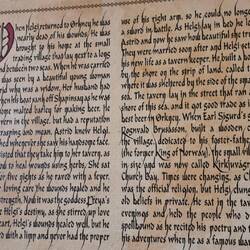 hen Helgi returned to Orkney he was
nearly dead of his wounds. He was
brought to his home at the small
trading village that lay next to a long
and besides two seas. When he was carried
was seen by a beautiful young woman
rid who was a widow. Her husband had
when his boat set off Shapinsay was
home waited baring for making beer. He
man in the village, but had a reputation
and mean. Astrid knew Helgi
ed whenever she saw his handsome face.
ed that they take him to her tavern, as
to had wounds using herbs. She sat
for five nights as he raved with a fyer.
r loving care the wounds healed and
s strength. No doubt it was the goddess Freya's
Helgi's destiny, as she stirred up love
heart, Helgi's wounds healed well, but he
with a limp and never had the proper
use of his right arm, so he could no longer
a sword in battle. As Helgi lay in bed he
Astrid and now he saw how beautiful she tru
They were married soon after and Helgi
his new life as a tavern keeper. He built a
by the shore on the strip of land, called
where it was sheltered by the shore of the
sea. The tavern lay in the street that
shore of this sea, and it got good trade
best beer in Orkney. When Earl Sigurd's
Rognvald Brusason, built a wooden
the village, dedicated to his foster-fathe
the former King of Norway), the small
in size and was now called Kirkjuvagr
Church Bay. Times were changing, as Ch
was the official religion, but Helgi,
old beliefs in private. He sat in the tav
evenings and held the people who
spellbound as he recited his poetry
his adventures when he was a famous